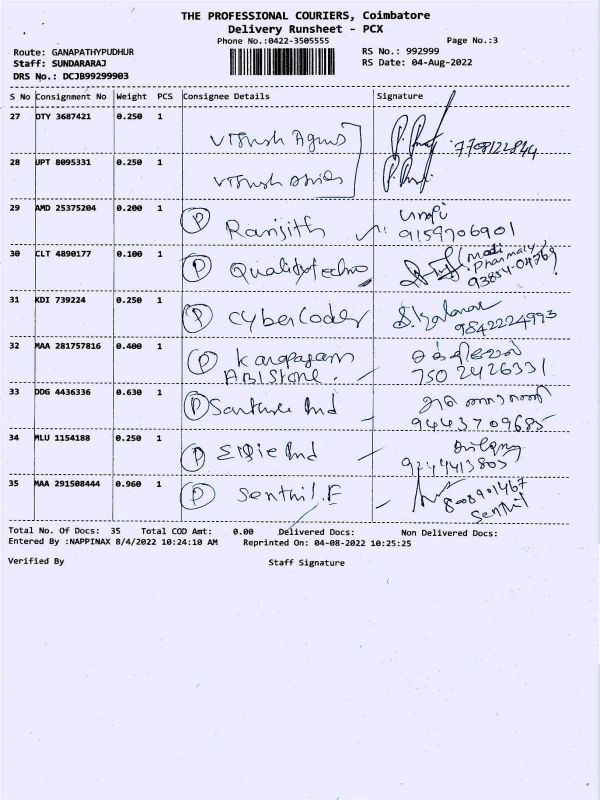 THE PROFESSIONAL COURIERS, Coimbatore
Delivery Runsheet - PCX
Phone No.:0422-3505555 Page No.:3
Route: GANAPATHYPUDHUR RS No.: 992999
Staff: SUNDARARAJ RS Date: 04-Aug-2022
DRS No.: DCJB99299903
S No Consignment No Weight PCS Consignee Details Signature
27 OTY 3687421 0.250 1
7708122844
28 UPT 8095331 0.250 1
29 AMD 25375204 0.200 1 P Ranjith
9159706901
30 CLT 4890177 0.100 1 P Qualitytechno
31 KDI 739224 0.250 1 P Cybercoder
9842224993
32 MAA 281757816 0.400 1 P Karpagam சக்திவேல்
ABI Stone. 750 2426331
33 DDG 4436336 0.630 1 P Ind
9443709685
34 MLU 1154188 0.250 1 P Ind
9244413805
35 MAA 291508444 0.960 1 P Senthil.E 8008901467
Senthil
Total No. Of Docs: 35 Total COD Amt: 0.00 Delivered Docs: Non Delivered Docs:
Entered By :NAPPINAX 8/4/2022 10:24:10 AM Reprinted On: 04-08-2022 10:25:25
Verified By Staff Signature